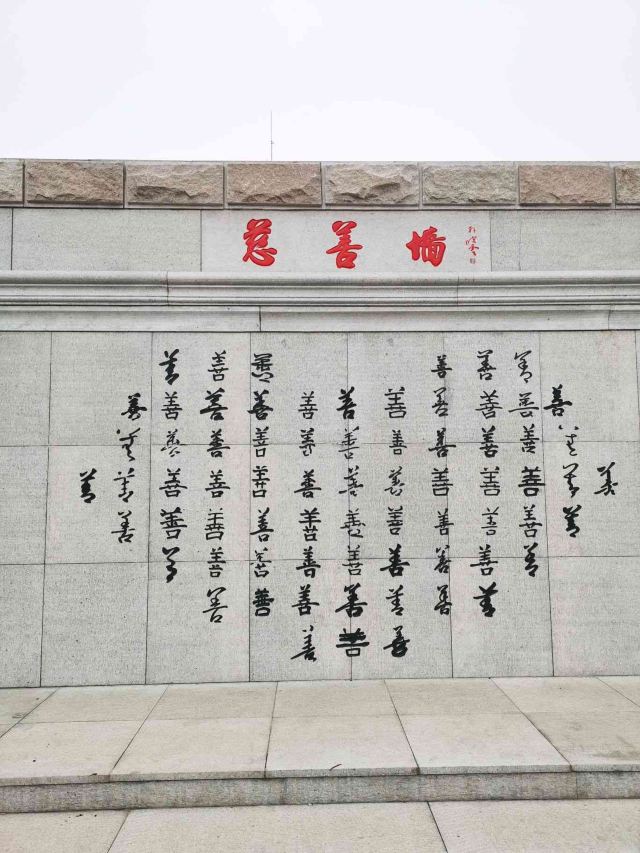 慈善墙
善
善善善善
善善善善善善
善善善善善善善
善善善善善善善
善善善善善善善
善善善善善善善
善善善善善善善
善善善善善善善
善善善善善善善
善善善善善善
善善善善
善